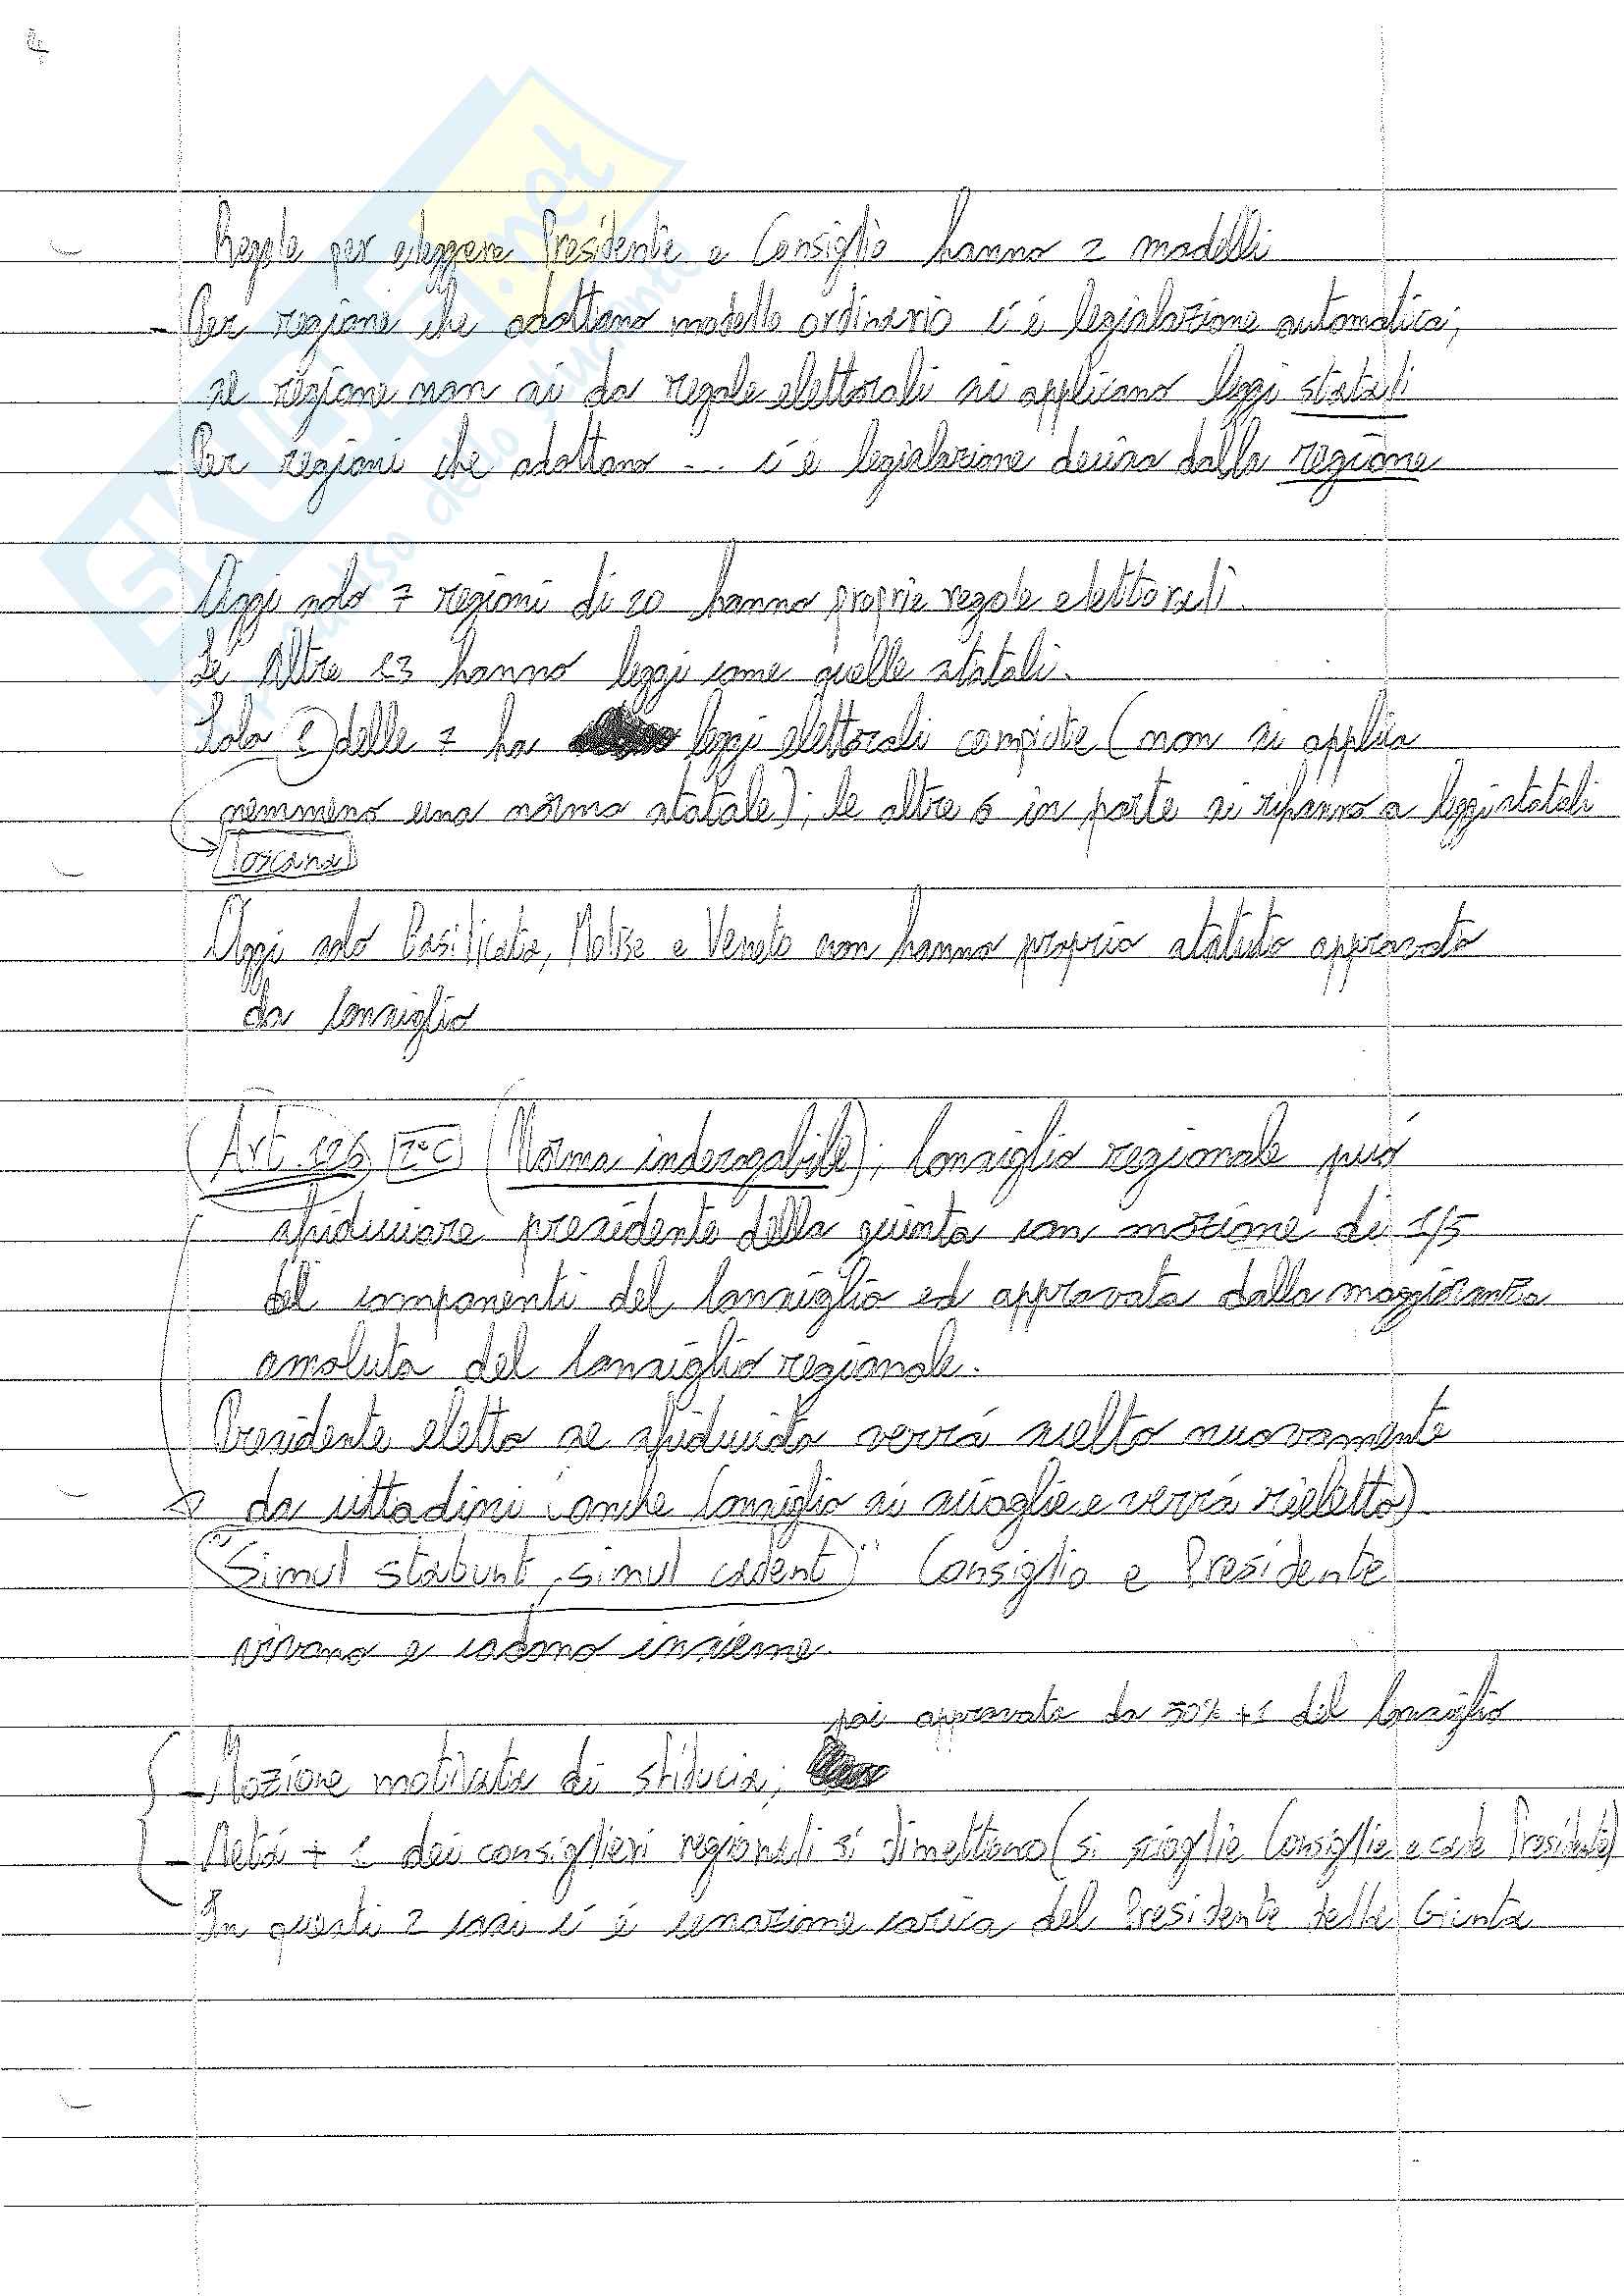 4
Regole per eleggere Presidente e Consiglio hanno 2 modelli
- Per regione che adottano modello ordinario c'é legislazione automatica;
se regione non si da regole elettorali si applicano leggi statali
- Per regioni che adottano ... c'é legislazione decisa dalla regione
Oggi solo 7 regioni di 20 hanno proprie regole elettorali.
Le Altre 13 hanno leggi come quelle statali.
Solo 1 delle 7 ha leggi elettorali compiute (non si applica
nemmeno una norma statale); le altre 6 in parte si rifanno a leggi statali
Toscana
Oggi solo Basilicata, Molise e Veneto non hanno proprio statuto approvato
da Consiglio
Art. 126 2°C (Norma inderogabile); Consiglio regionale puó
sfiduciare presidente della giunta con mozione di 1/5
del componenti del Consiglio ed approvata dalla maggioranza
assoluta del Consiglio regionale.
Presidente eletto se sfiduciato verrá scelto nuovamente
da cittadini (anche Consiglio si scioglie e verrá rieletto)
"Simul stabunt, simul cadent" Consiglio e Presidente
vivono e cadono insieme.
poi approvata da 50% +1 del Consiglio
- Mozione motivata di sfiducia;
- Metá + 1 dei consiglieri regionali si dimettono (si scioglie Consiglio e cade Presidente)
In questi 2 casi c'é cessazione carica del Presidente della Giunta
SKUOLA.net